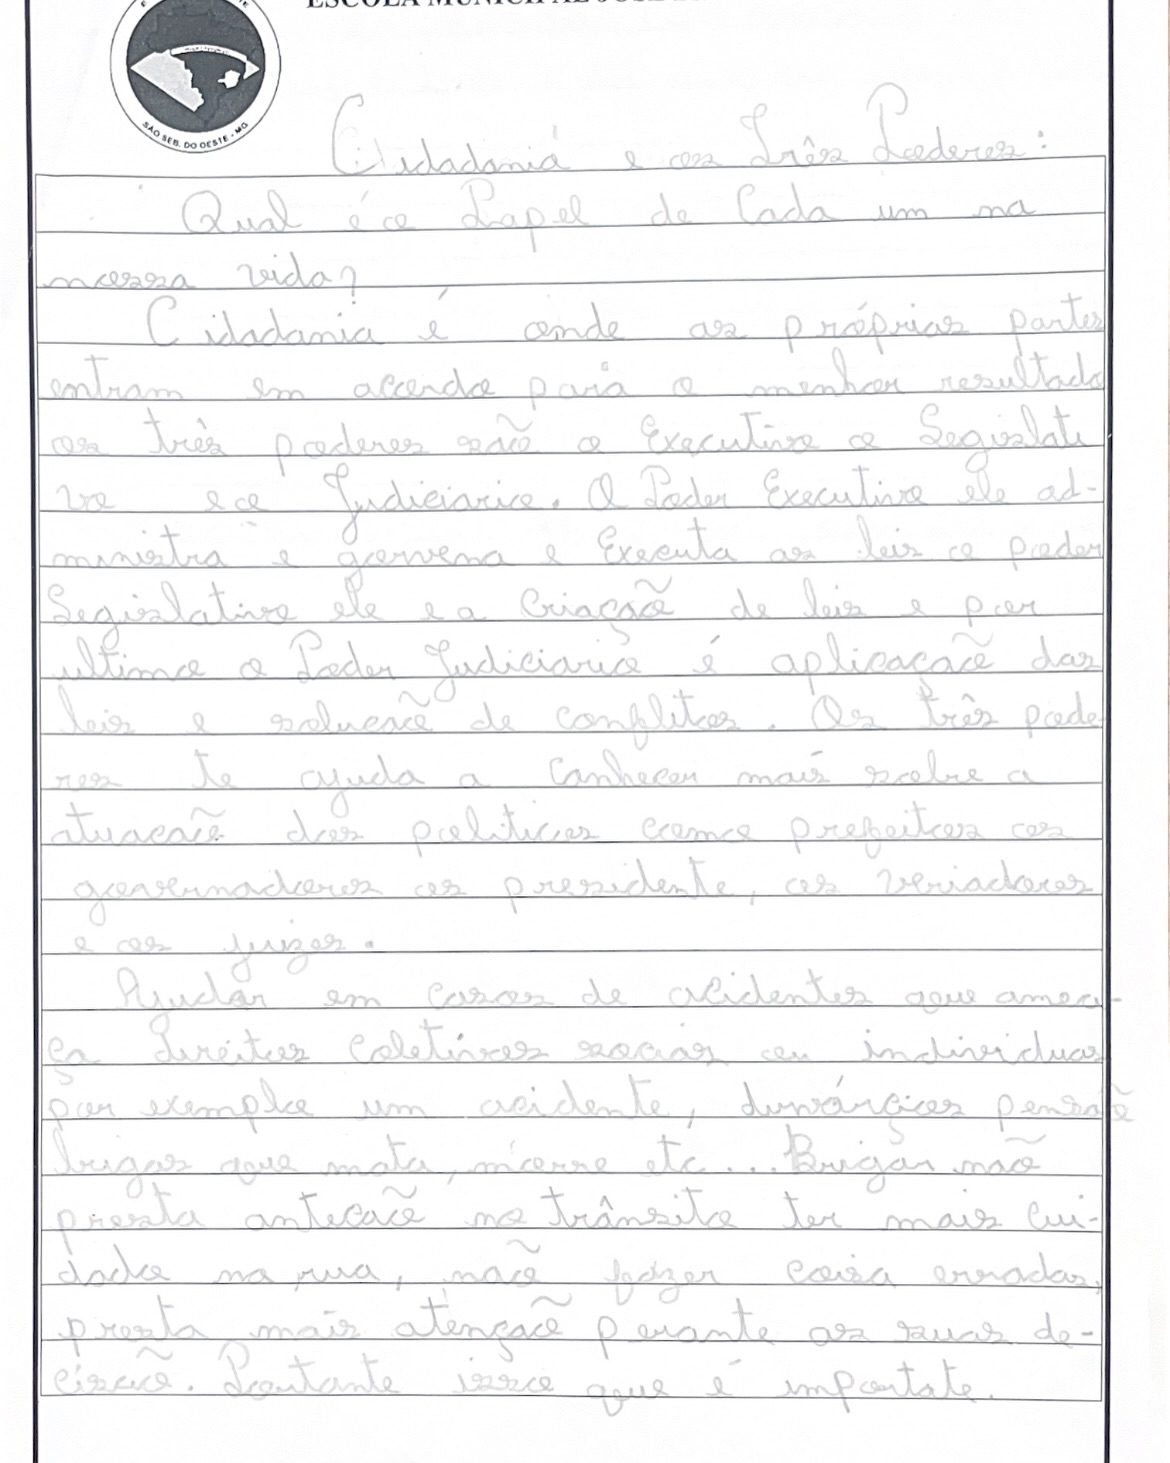 SÃO SEB. DO OESTE - MG
Cidadania e os Três Poderes:
Qual é o Papel de Cada um na
nossa vida?
Cidadania é onde as próprias partes
entram em acordo para o menhor resultado
os três poderes são o Executivo o Legislati
vo e o Judiciario. O Poder Executivo ele ad-
ministra e governa e Executa as leis o poder
Legislativo ele e a Criação de leis e por
ultimo o Poder Judiciario é aplicação das
leis e solucão de conflitos. Os três pode
res te ajuda a Conhecer mais sobre a
atuacão dos politicos como prefeitos os
governadores os presidente, os veriadores
e os juizes.
Ajudar em casos de acidentes que amea-
ça direitos coletivos socias ou individuas
por exemplo um acidente, pensão
brigas que mata, morre etc... Brigar não
presta antecão no trânsito ter mais cui-
dado na rua, não fazer coisa erradas,
presta mais atenção perante as suas de-
cisão. Portanto isso que é importate.